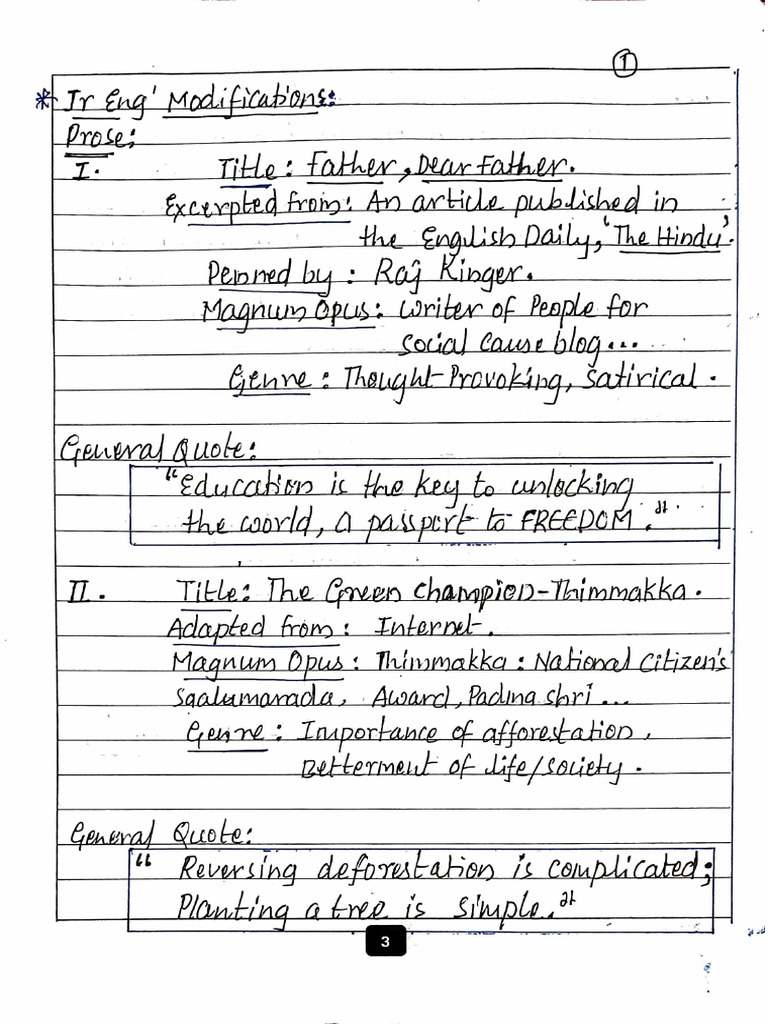 ①
* Jr Eng' Modifications:
Prose:
I. Title: Father, Dear Father.
Excerpted from: An article published in
the English Daily, 'The Hindu'.
Penned by: Raj Kinger.
Magnum Opus: Writer of People for
social cause blog...
Genre: Thought-Provoking, Satirical.
General Quote:
"Education is the key to unlocking
the world, a passport to FREEDOM."
II. Title: The Green Champion-Thimmakka.
Adapted from: Internet.
Magnum Opus: Thimmakka: National Citizen's
Saalumarada, Award, Padma shri...
Genre: Importance of afforestation,
Betterment of life/society.
General Quote:
"Reversing deforestation is complicated;
Planting a tree is simple."
3